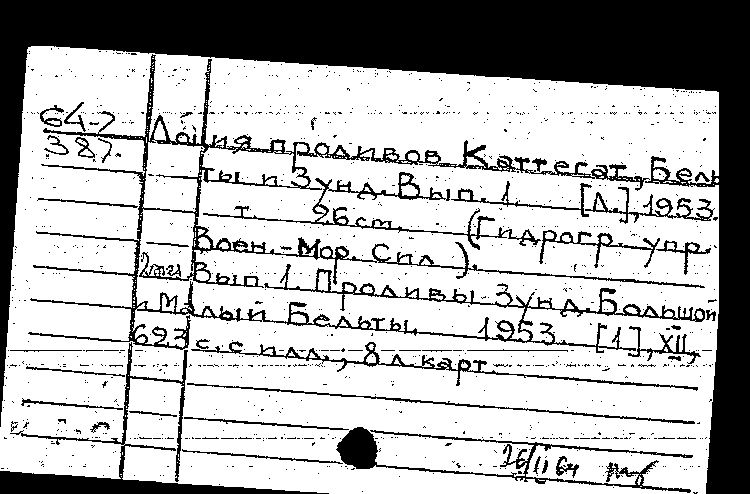 64-7
387.
Лоция проливов Каттегат, Бель
ты и Зунд. Вып. 1. [Л.], 1953.
т. 26 cm. (Гидрогр. упр.
Воен.-Мор. Сил).
Вып. 1. Проливы Зунд. Большой
и Малый Бельты. 1953. [1], XII,
693 с. с илл.; 8 л карт.
26/II 64